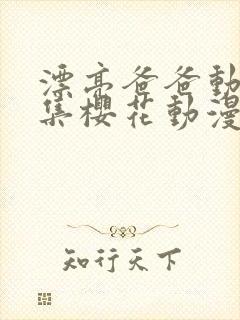 漂亮爸爸動
集櫻花動漫
知行天下